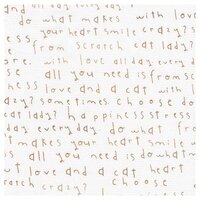 do what makes with love
your heart smile crazy?
from scratch cat lady?
are. with love all day every da
se all you need is from sc
love and a cat with l
zy? sometimes. choose do
at lady? happiness stress
every day. do what makes
t makes your heart smile
me all you need is do what m
wi love and a cat love
scratch crazy? choose